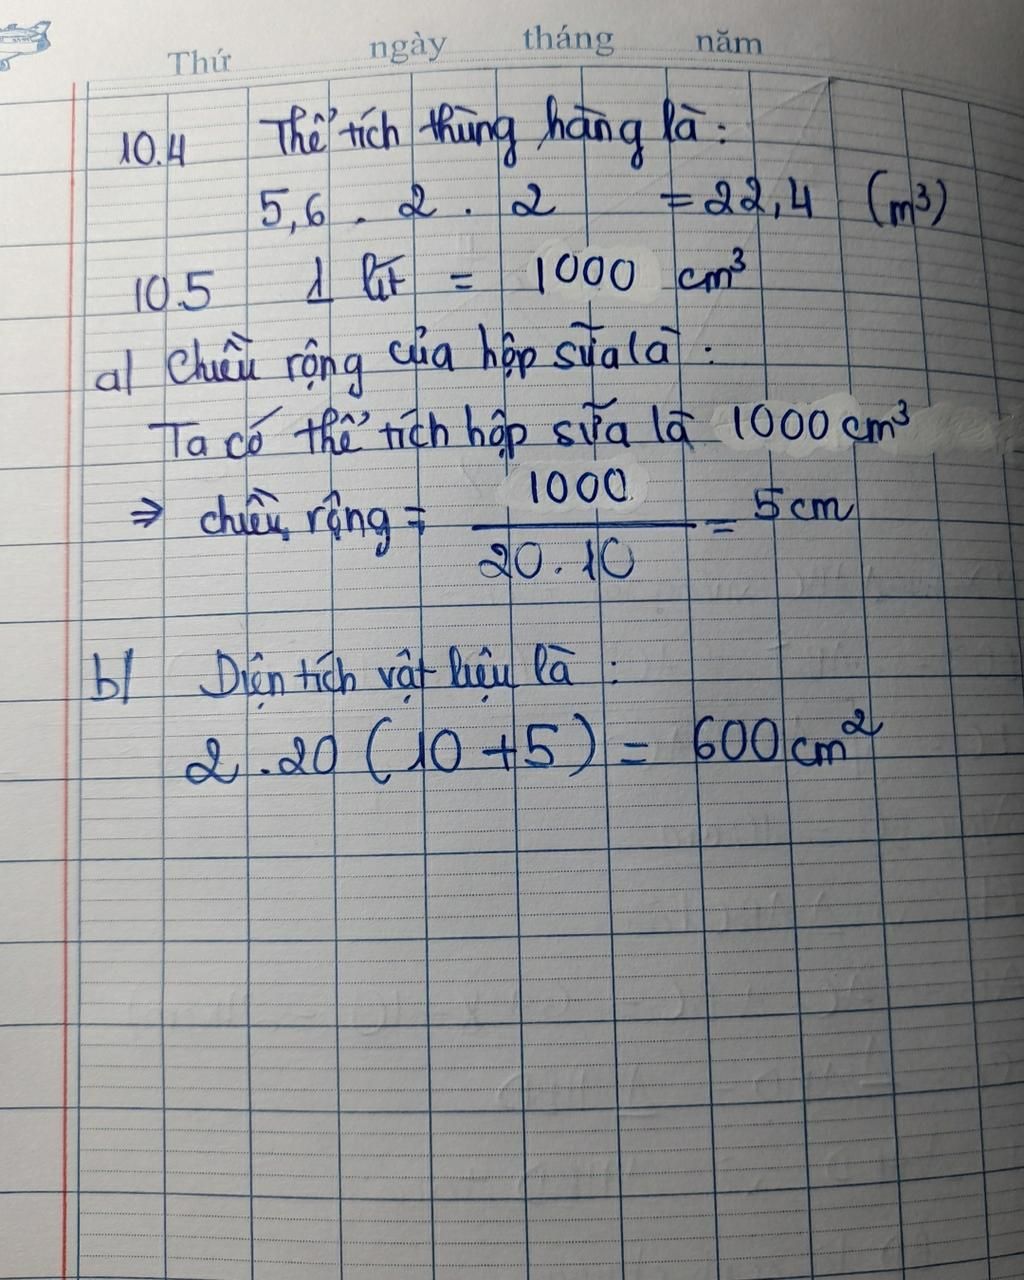 Thứ ngày tháng năm
10.4 Thể tích thùng hàng là :
5,6 . 2 . 2 = 22,4 (m³)
10.5 1 lít = 1000 cm³
a) Chiều rộng của hộp sữa là :
Ta có thể tích hộp sữa là 1000 cm³
⇒ chiều rộng = 1000 / 20 . 10 = 5 cm
b) Diện tích vật liệu là :
2 . 20 ( 10 + 5 ) = 600 cm²